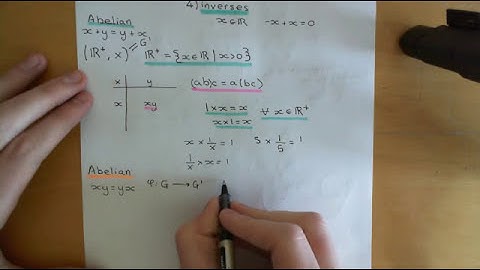 4) inverses
Abelian x∈ℝ -x+x=0
x+y=y+x
(ℝ⁺, ×) = G' ℝ⁺={x∈ℝ | x>0}
x y (ab)c = a(bc)
x xy
1×x=x
x×1=x ∀ x∈ℝ⁺
x × 1/x = 1 5 × 1/5 = 1
1/x × x = 1
Abelian
xy=yx φ: G ⟶ G'